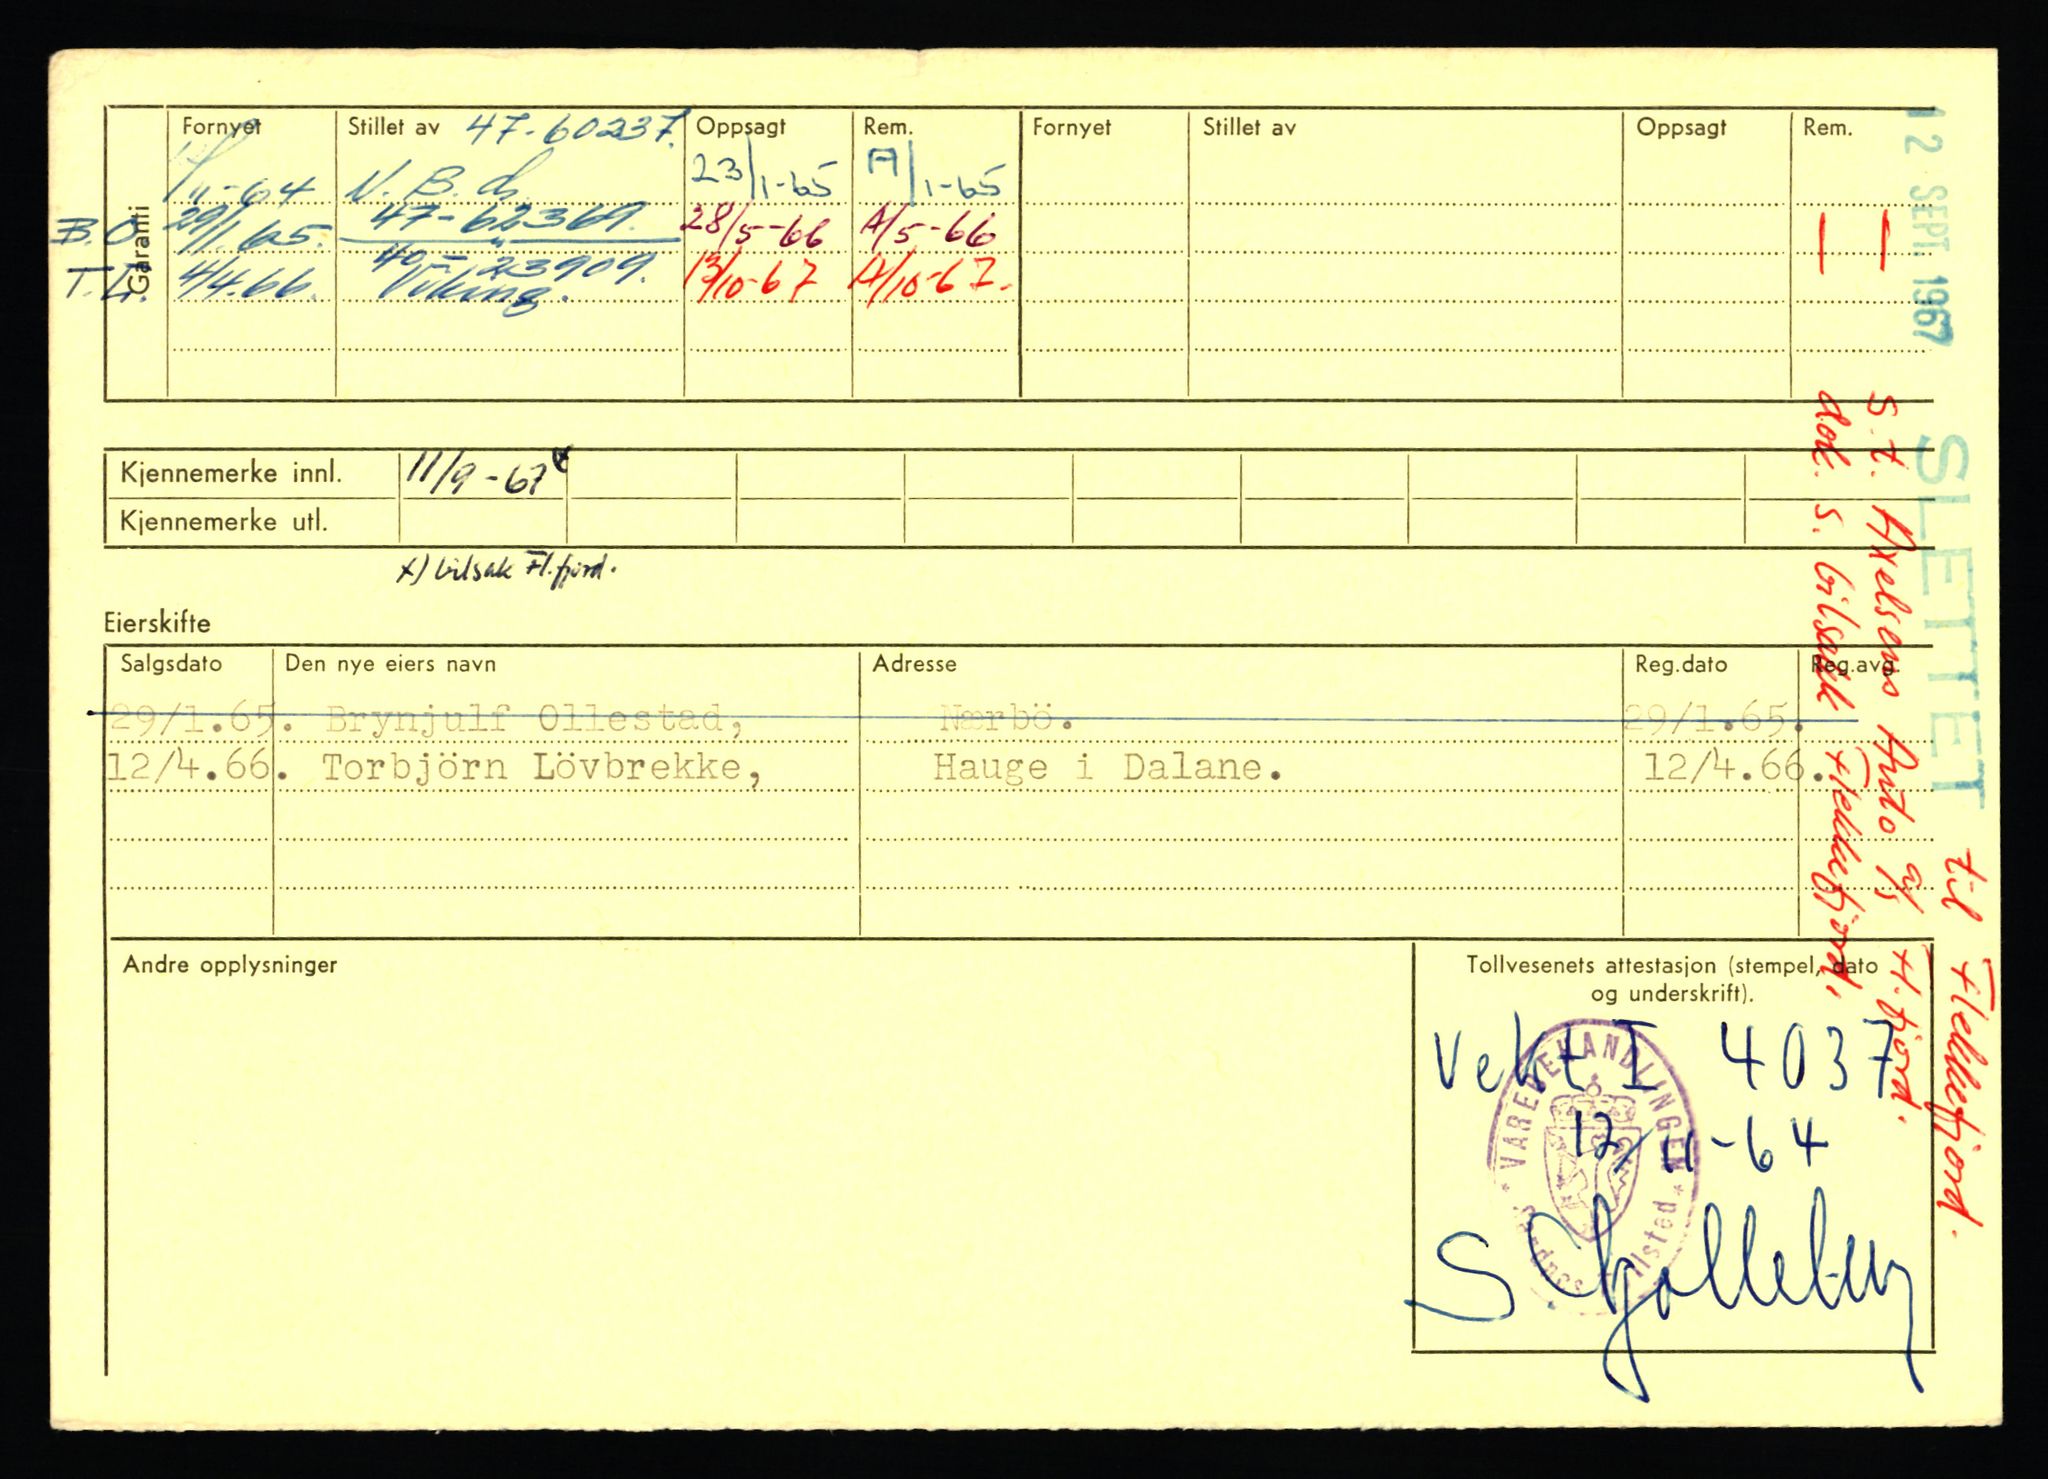 Garanti
Fornyet Stillet av 47-60237. Oppsagt Rem. Fornyet Stillet av Oppsagt Rem.
11-64 N. B. 23/1-65 A/1-65
B.O. 29/1.65. 47-62369. 28/5-66 A/5-66
40-23909.
T.L. 4/4.66. Viking. 13/10-67 A/10-67.
Kjennemerke innl. 11/9-67 x
Kjennemerke utl.
x) bilsak Fl.fjord.
Eierskifte
Salgsdato Den nye eiers navn Adresse Reg.dato Reg.avg.
29/1.65. Brynjulf Ollestad, Nærbö. 29/1.65.
12/4.66. Torbjörn Lövbrekke, Hauge i Dalane. 12/4.66.
Andre opplysninger
Tollvesenets attestasjon (stempel, dato
og underskrift).
Vekt I 4037
12/11-64
VAREBEHANDLINGEN
Sandnes Tollsted
12 SEPT. 1967 SLETTET til Flekkefjord.
S.t. Axelsens Auto a/s Fl.fjord.
dok. s. bilsak Flekkefjord.